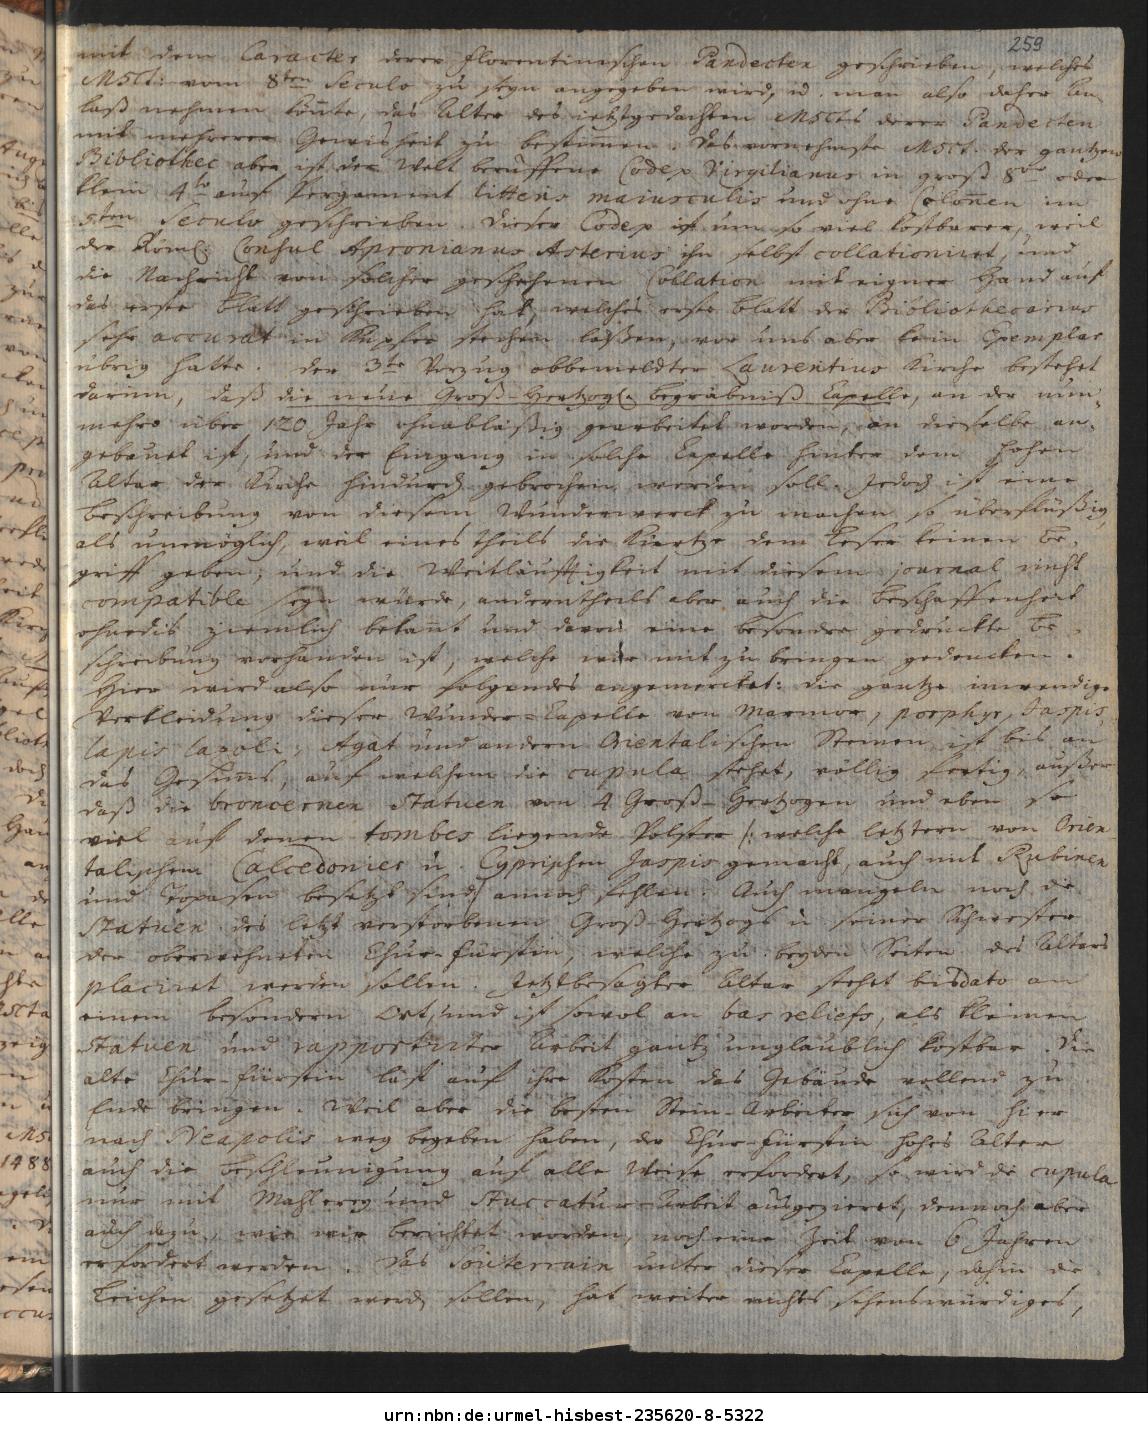 259
mit dem Caracter derer florentinischen Pandecten geschrieben, welches
MSCt: vom 8ten Seculo zu seyn angegeben wird, ud. man also daher An-
laß nehmen köñte, das Alter des ietztgedachten MSCts derer Pandecten
mit mehrerer Gewisheit zu bestim̃en. Das vornehmste MSCt. der gantzen
Bibliothec aber ist der Welt berüffene Codex Virgilianus in groß 8vo oder
klein 4to auf Pergament litteris maiusculis und ohne Coloñen im
5ten Seculo geschrieben. dieser Codex ist um so viel kostbarer, weil
der Röml: Consul Apronianus Asterius ihn selbst collationiret, und
die Nachricht von solcher geschehenen Collation mit eigner Hand auf
das erste Blatt geschrieben hat, welches erste Blatt der Bibliothecarius
sehr accurat in Kupfer stechen laßen, vor uns aber kein Exemplar
übrig hatte. Der 3te Vorzug obbemeldter Laurentius Kirche bestehet
darinn, daß die neue Groß-Hertzogl. begräbniß Capelle, an der nun-
mehro über 120 Jahr ohnabläßig gearbeitet worden, an dieselbe an-
gebauet ist, und der Eingang in solche Capelle hinter dem hohen
Altar der Kirche hindurch gebrochen werden soll. Jedoch ist eine
Beschreibung von diesem Wunderwerck zu machen so überflüßig,
als unmöglich, weil eines theils die Kürtze dem Leser keinen Be-
griff geben, und die Weitläufftigkeit mit diesem journal nicht
compatible seyn würde, anderntheils aber auch die Beschaffenheit
ohnedis ziemlich bekañt und davon eine besondre gedruckte Be-
schreibung vorhanden ist, welche wir mit zu bringen gedencken.
Hier wird also nur folgendes angemercket: die gantze inwendige
Verkleidung dieser Wunder-Capelle von Marmor, porphyr, Jaspis,
lapis lazoli, Agat und andern Orientalischen Steinen ist bis an
das Gesim̃s, auf welchem die cupula stehet, völlig fertig, außer
daß die broncernen Statuen von 4 Groß-Hertzogen und eben so
viel auf denen tombes liegende Polster /: welche letztern von Orien-
talischem Calcedonier u. Cyprischen Jaspis gemacht, auch mit Rubinen
und Topasen besetzt sind/ annoch fehlen. Auch mangeln noch die
Statuen des letzt verstorbenen Groß-Hertzogs u. seiner Schwester
der oberwehnten Chur-fürstin, welche zu beyden Seiten des Altars
placiret werden sollen. Jetztbesagter Altar stehet bis dato an
einem besondern Ort, und ist sowol an bas reliefs, als kleinen
Statuen und rapportirter Arbeit gantz unglaublich kostbar. Die
alte Chur-fürstin läst auf ihre Kosten das Gebäude vollend zu
Ende bringen. Weil aber die besten Stein-Arbeiter sich von hier
nach Neapolis weg begeben haben, der Chur-fürstin hohes Alter
auch die Beschleunigung auf alle Weise erfordert, so wird die cupula
nur mit Mahlerey und Stuccatur-Arbeit ausgezieret, dennoch aber
auch dazu, wie wir berichtet worden, noch eine Zeit von 6 Jahren
erfordert werden. Das Souterrain unter dieser Capelle, dahin die
Leichen gesetzet werden sollen, hat weiter nichts sehenswürdiges,
urn:nbn:de:urmel-hisbest-235620-8-5322